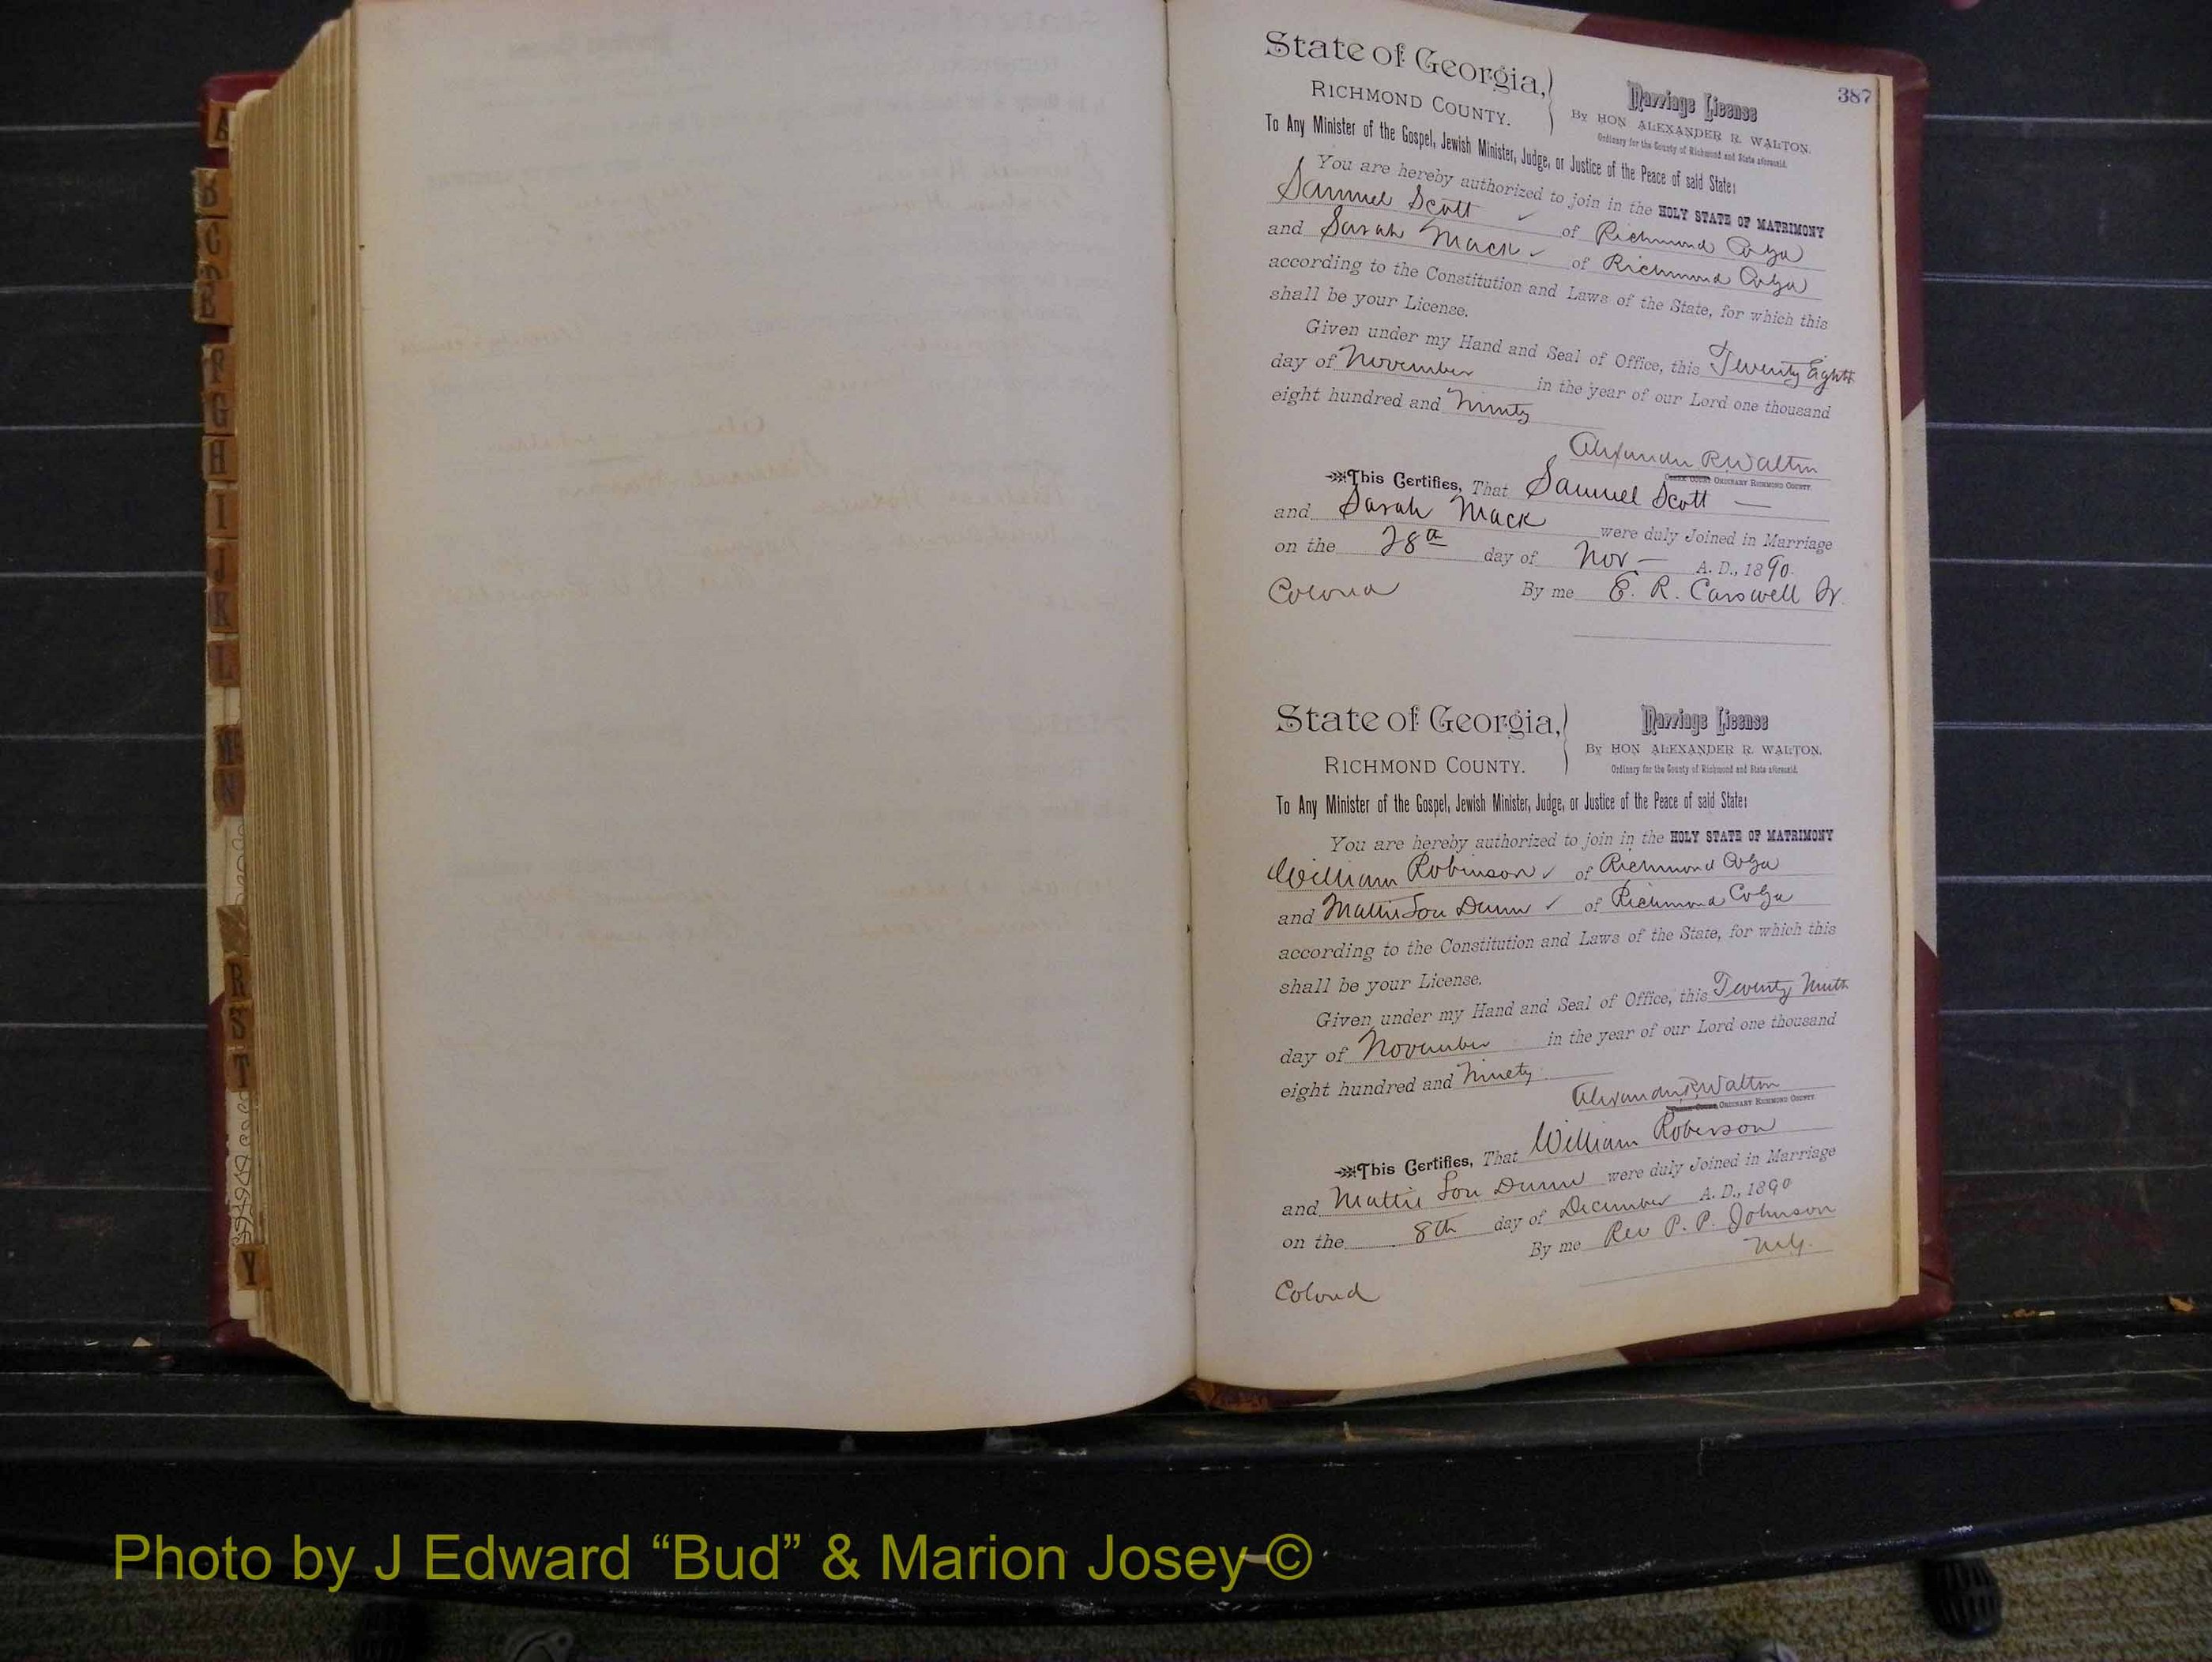 387
State of Georgia,
RICHMOND COUNTY.
Marriage License
By HON ALEXANDER R. WALTON,
Ordinary for the County of Richmond and State aforesaid.
To Any Minister of the Gospel, Jewish Minister, Judge, or Justice of the Peace of said State:
You are hereby authorized to join in the HOLY STATE OF MATRIMONY
Samuel Scott of Richmond Co Ga
and Sarah Mack of Richmond Co Ga
according to the Constitution and Laws of the State, for which this
shall be your License.
Given under my Hand and Seal of Office, this Twenty Eighth
day of November in the year of our Lord one thousand
eight hundred and Ninty
Alexander R Walton
ORDINARY RICHMOND COUNTY.
This Certifies, That Samuel Scott
and Sarah Mack were duly Joined in Marriage
on the 28th day of Nov A. D., 1890.
Colored By me E. R. Carswell Jr.
State of Georgia,
RICHMOND COUNTY.
Marriage License
By HON ALEXANDER R. WALTON,
Ordinary for the County of Richmond and State aforesaid.
To Any Minister of the Gospel, Jewish Minister, Judge, or Justice of the Peace of said State:
You are hereby authorized to join in the HOLY STATE OF MATRIMONY
William Robinson of Richmond Co Ga
and Mattie Lou Dunn of Richmond Co Ga
according to the Constitution and Laws of the State, for which this
shall be your License.
Given under my Hand and Seal of Office, this Twenty Ninth
day of November in the year of our Lord one thousand
eight hundred and Ninety
Alexander R Walton
ORDINARY RICHMOND COUNTY.
This Certifies, That William Roberson
and Mattie Lou Dunn were duly Joined in Marriage
on the 8th day of December A. D., 1890
By me Rev P. P. Johnson
M.G.
Colored
A
B
C
D
E
F
G
H
I
J
K
L
M
N
R
S
T
Y
Photo by J Edward “Bud” & Marion Josey ©